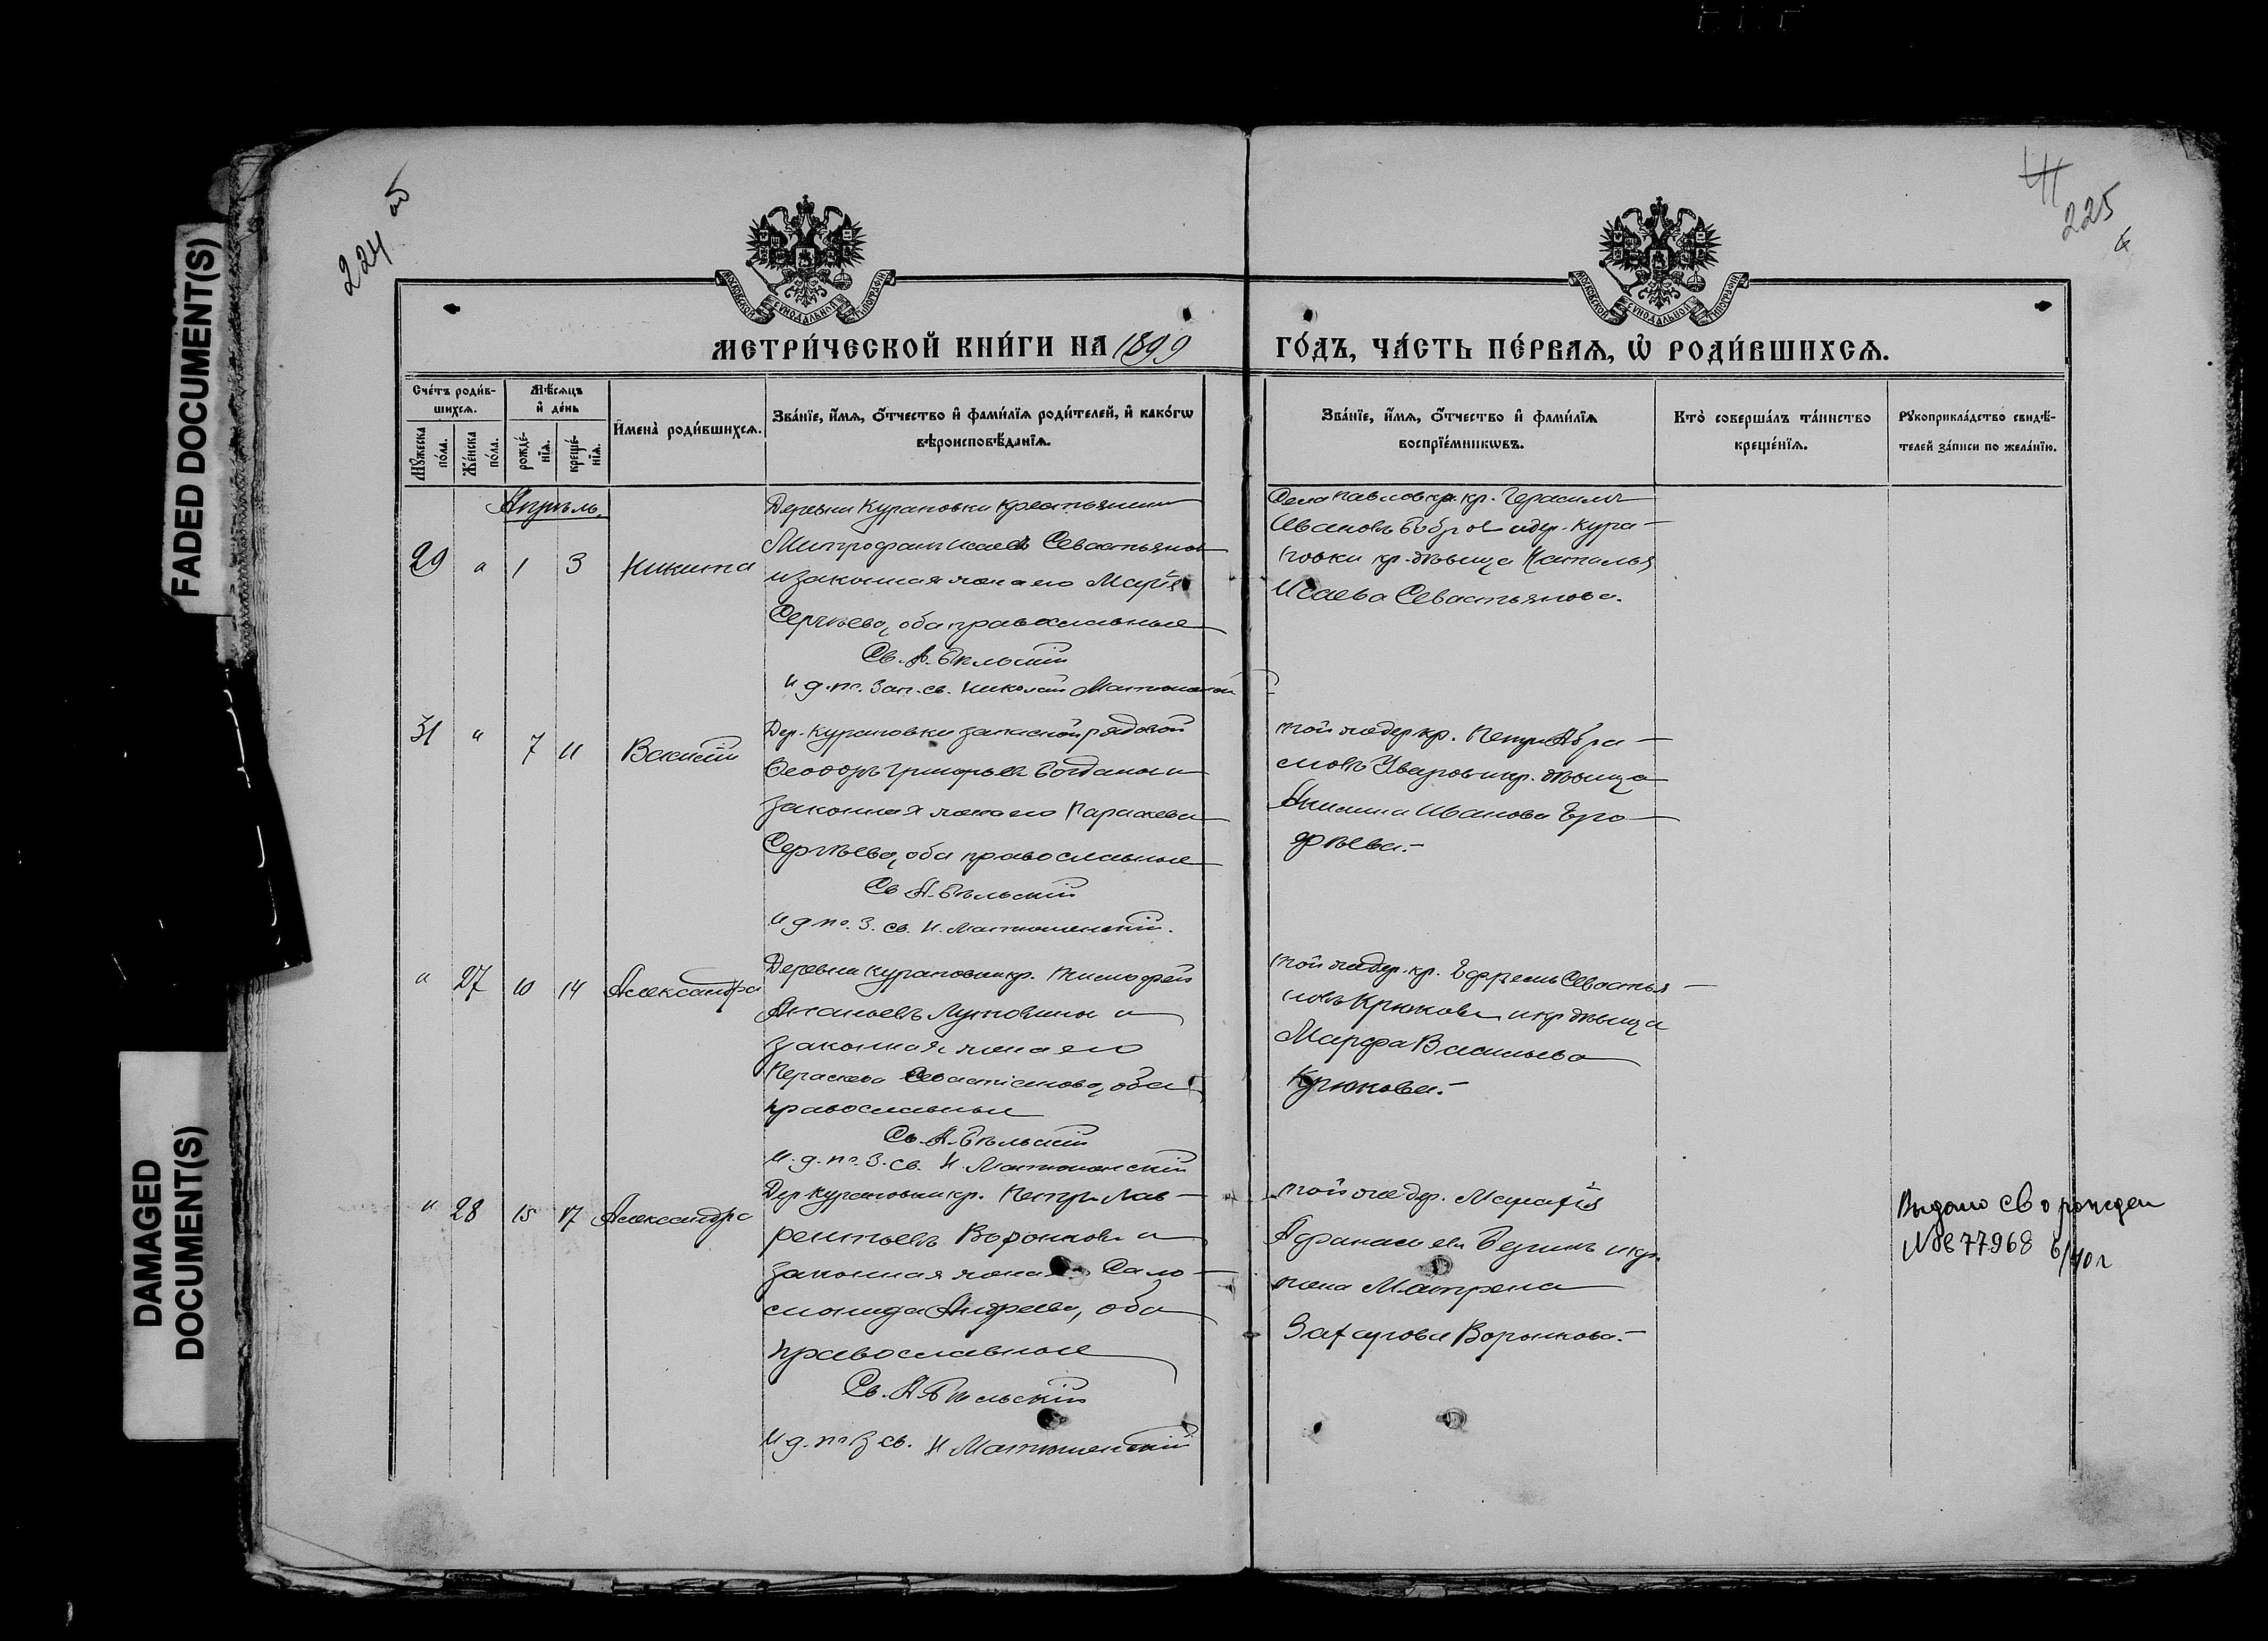 FADED DOCUMENT(S)
DAMAGED
DOCUMENT(S)
224 об
225
МОСКОВСКОЙ СУНОДАЛЬНОЙ ТИПОГРАФІИ
МОСКОВСКОЙ СУНОДАЛЬНОЙ ТИПОГРАФІИ
МЕТРИ́ЧЕСКОЙ КНИ́ГИ НА 1899 ГО́ДЪ, ЧА́СТЬ ПЕ́РВАѦ, Ѡ҆ РОДИ́ВШИХСѦ.
Сче́тъ роди́в-
шихсѧ.
Мꙋ́жеска
по́ла.
Же́нска
по́ла.
Мѣ́сѧцъ
и҆ де́нь
рожде́-
нїѧ.
креще́-
нїѧ.
И҆мена̀ роди́вшихсѧ.
Зва́нїе, и҆́мѧ, ѻ҆́тчество и҆ фами́лїѧ роди́телей, и҆ како́гѡ
вѣроисповѣ́данїѧ.
Зва́нїе, и҆́мѧ, ѻ҆́тчество и҆ фами́лїѧ
воспрїе́мникѡвъ.
Кто̀ соверша́лъ та́инство
креще́нїѧ.
Рꙋкоприкла́дство свидѣ́-
телей за́писи по жела́нїю.
Апрѣль.
29 " 1 3 Никита
Деревни Курановки крестьянинъ
Митрофанъ Исаевъ Севастьянов
и законная жена его Марія
Сергѣева, оба православные
Св. А. Бѣльскій
И. д. пс. Зап. св. Николай
Села Павловки кр. Герасимъ
Ивановъ Бобров и дер. Кура-
новки кр. дѣвица Наталья
Исаева Севастьянова.
31 " 7 11 Василій
Дер. Курановки запасной рядовой
Ѳеодоръ Григорьевъ Богданов и
законная жена его Параскева
Сергѣева, оба православные
Св. А. Бѣльскій
И. д. пс. З. св. Н. Матюшенскій.
той же дер. кр. Петръ Абра-
мовъ Уваров и кр. дѣвица
Акилина Иванова Еро-
фѣева.-
" 27 10 14 Александра
Деревни Курановки кр. Тимофей
Ананьевъ Лутовинов и
законная жена его
Параскева Севастіанова, оба
православные
Св. А. Бѣльскій
И. д. пс. З. св. Н. Матюшенскій
той же дер. кр. Ефремъ Севастья-
новъ Крюковъ и кр. дѣвица
Марфа Васильева
Крюкова.-
" 28 15 17 Александра
Дер. Курановки кр. Петръ Лав-
рентьевъ Воронков и
законная жена его Сало-
монида Андреева, оба
православные
Св. А. Бѣльскій
И. д. пс. З. св. Н. Матюшенскій
той же дер. Малафій
Афанасьевъ и кр.
жена Матрена
Захарова Воронкова.-
Выдано св о рожден
№ 77968 6/40 г